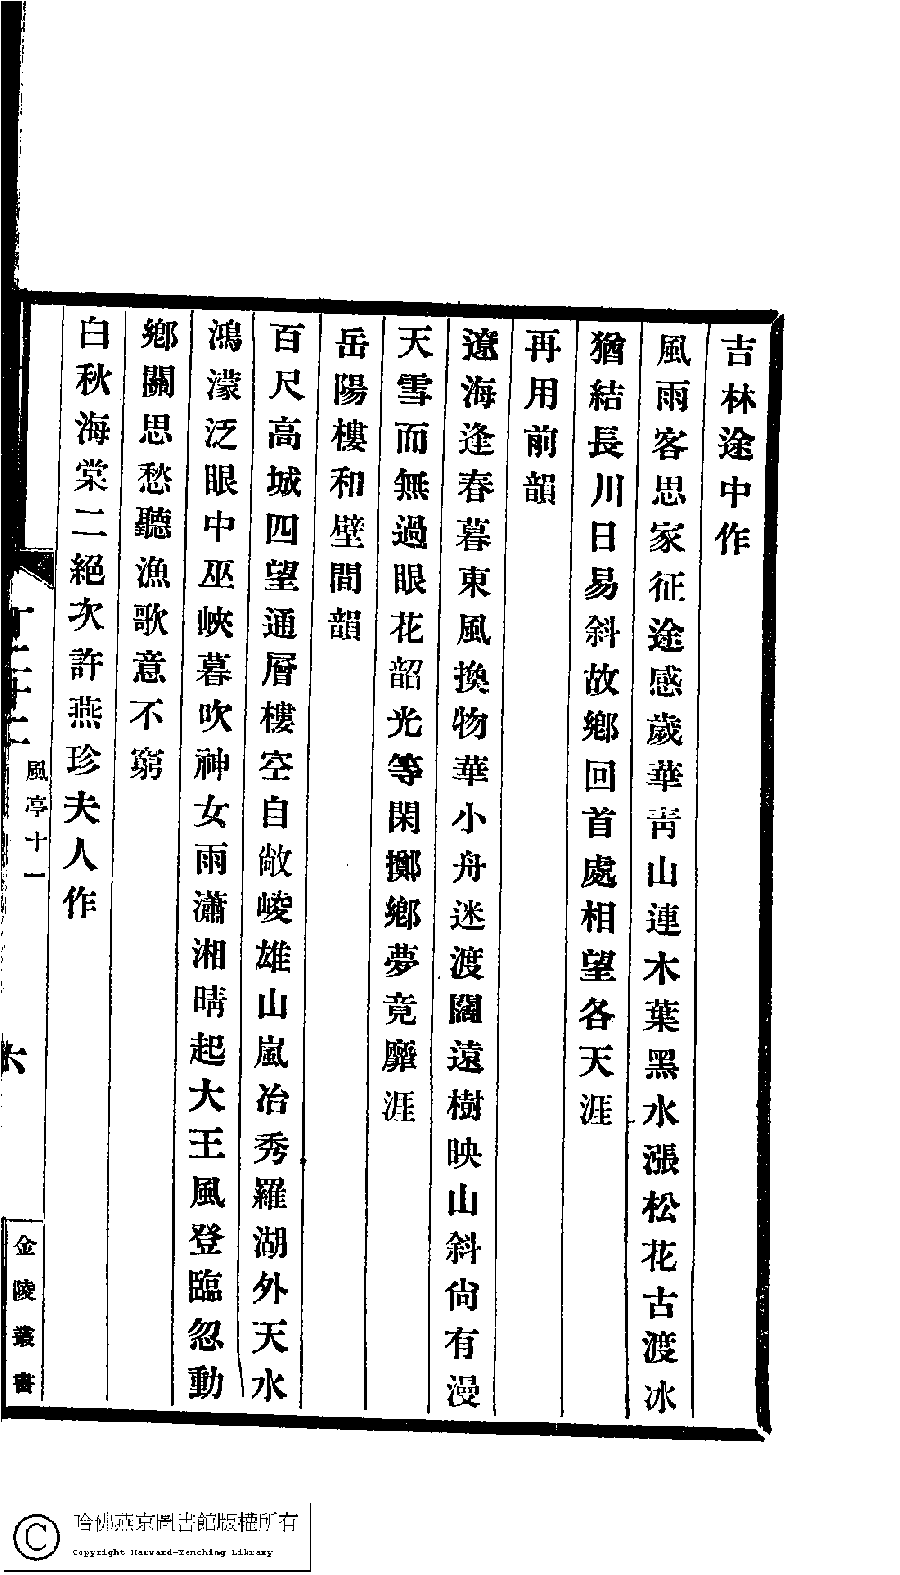 吉林途中作
風雨客思家征途感歲華靑山連木葉黑水漲松花古渡冰
猶結長川日易斜故鄕回首處相望各天涯
再用前韻
遼海逢春暮東風換物華小舟迷渡闊遠樹映山斜尙有漫
天雪而無過眼花韶光等閑擲鄕夢竟靡涯
岳陽樓和壁間韻
百尺高城四望通層樓空自敞崚雄山嵐冶秀羅湖外天水
鴻濛泛眼中巫峽暮吹神女雨瀟湘晴起大王風登臨忽動
鄕關思愁聽漁歌意不窮
白秋海棠二絕次許燕珍夫人作
風亭十一
六
金陵叢書
哈佛燕京圖書館版權所有
Copyright Harvard-Yenching Library